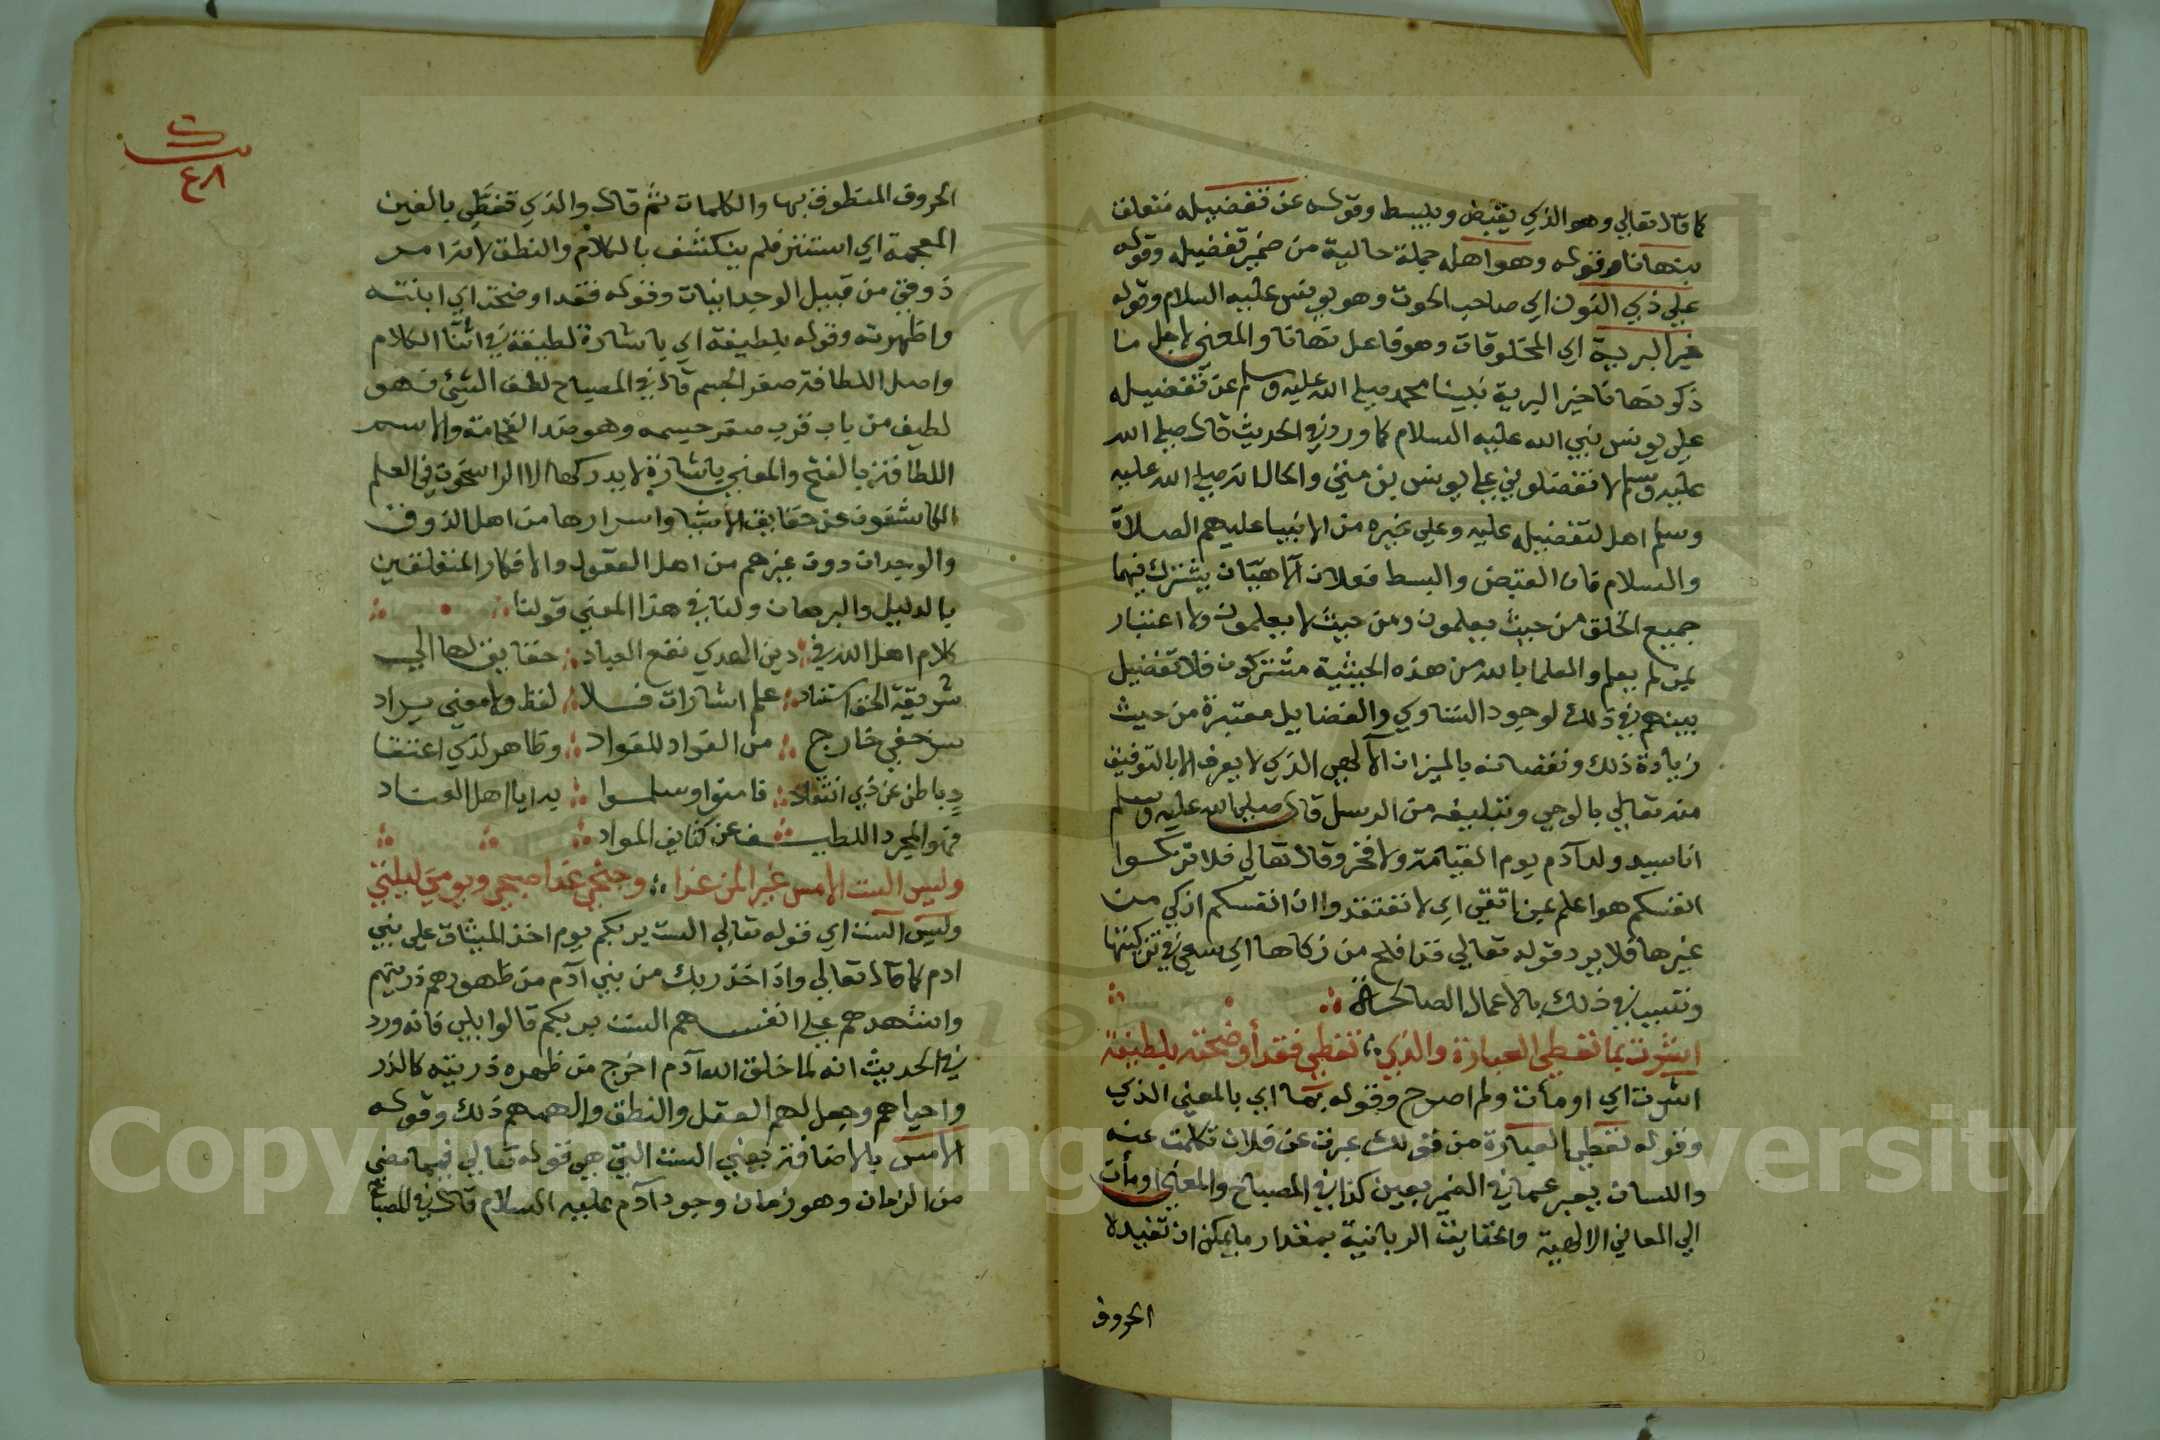 كما قال تعالي وهو الذي يقبض ويبسط وقوله عن تفضيله متعلق
بنهانا وقوله وهو اهله جملة حالية من ضمير تفضيله وقوله
علي ذي النون اي صاحب الحوت وهو يونس عليه السلام وقوله
خير البرية اي المخلوقات وهو فاعل نهانا والمعني لاجل ما
ذكر نهانا خير البرية نبينا محمد صلي الله عليه وسلم عن تفضيله
علي يونس نبي الله عليه السلام كما ورد في الحديث قال صلي الله
عليه وسلم لا تفضلوني علي يونس بن متي والحال انه صلي الله عليه
وسلم اهل لتفضيله عليه وعلي غيره من الانبيا عليهم الصلاة
والسلام فان القبض والبسط فعلان آلاهيان يشترك فيهما
جميع الخلق من حيث يعلمون ومن حيث لا يعلمون ولا اعتبار
بمن لم يعلم والعلما بالله من هذه الحيثية مشتركون فلا تفضيل
بينهم في ذلك لوجود التساوي والفضايل معتبرة من حيث
زيادة ذلك ونقصانه بالميزان الآلهي الذي لا يعرف الا بالتوفيق
منه تعالي بالوحي وتبليغه من الرسل قال صلي الله عليه وسلم
انا سيد ولد آدم يوم القيامة ولا فخر وقال تعالي فلا تزكوا
انفسكم هو اعلم بمن اتقي اي لا تعتقدوا ان انفسكم ازكي من
غيرها فلا يرد قوله تعالي قد افلح من زكاها اي سعي في تزكيتها
وتسبب في ذلك بالاعمال الصالحة
اشرت بما تعطي العبارة والذي تغطي فقد أوضحته بلطيفة
اشرت اي اومأت ولم اصرح وقوله بما اي بالمعني الذي
وقوله تعطي العبارة من قولك عبرت عن فلان تكلمت عنه
واللسان يعبر عما في الضمير يعين كذا في المصباح والمعني اومأت
الي المعاني الالهية والحقايق الربانية بمقدار ما يمكن ان تفيده لا
الحروف
٤٨
الحروف المنطوق بها والكلمات ثم قال والذي تغطي بالغين
المعجمة اي استتر فلم ينكشف بالكلام والنطق لانه امر
ذوقي من قبيل الوجدانيات وقوله فقد اوضحته اي ابنته
واظهرته وقوله بلطيفة اي باشارة لطيفة في اثنآ الكلام
واصل اللطافة صغر الجسم قال في المصباح لطف الشئ فهو
لطيف من باب قرب صغر جسمه وهو ضد الضخامة والاسم
اللطافة بالفتح والمعني باشارة لا يدركها الا الراسخون في العلم
الكاشفون عن حقايق الاشيا واسرارها من اهل الذوق
والوجدان دون غيرهم من اهل العقول والافكار المتعلقين
بالدليل والبرهان ولنا في هذا المعني قولنا
كلام اهل الله في دين الهدي نفع العباد حقايق لها الي
شريعة الحق استناد علم اشارات فلا لفظ ولا معني يراد
سر خفي خارج من الفواد للفواد وظاهر لذي اعتقا
د باطن عن ذي انتقاد فامنوا وسلموا يدا يا اهل العناد
فهو المجرد اللطيف عن كثايف المواد
وليس الست الامس غير المن غدا وجنحي غدا صبحي ويومي ليلتي
وليس الست اي قوله تعالي الست بربكم يوم اخذ الميثاق علي بني
ادم كما قال تعالي واذ اخذ ربك من بني آدم من ظهورهم ذريتهم
واشهدهم علي انفسهم الست بربكم قالوا بلي فانه ورد
في الحديث انه لما خلق الله آدم اخرج من ظهره ذريته كالذر
واحياهم وجعل لهم العقل والنطق والهمهم ذلك وقوله
الامس بالاضافة يعني الست التي هي قوله تعالي فيما مضي
من الزمان وهو زمان وجود آدم عليه السلام قال في المصباح